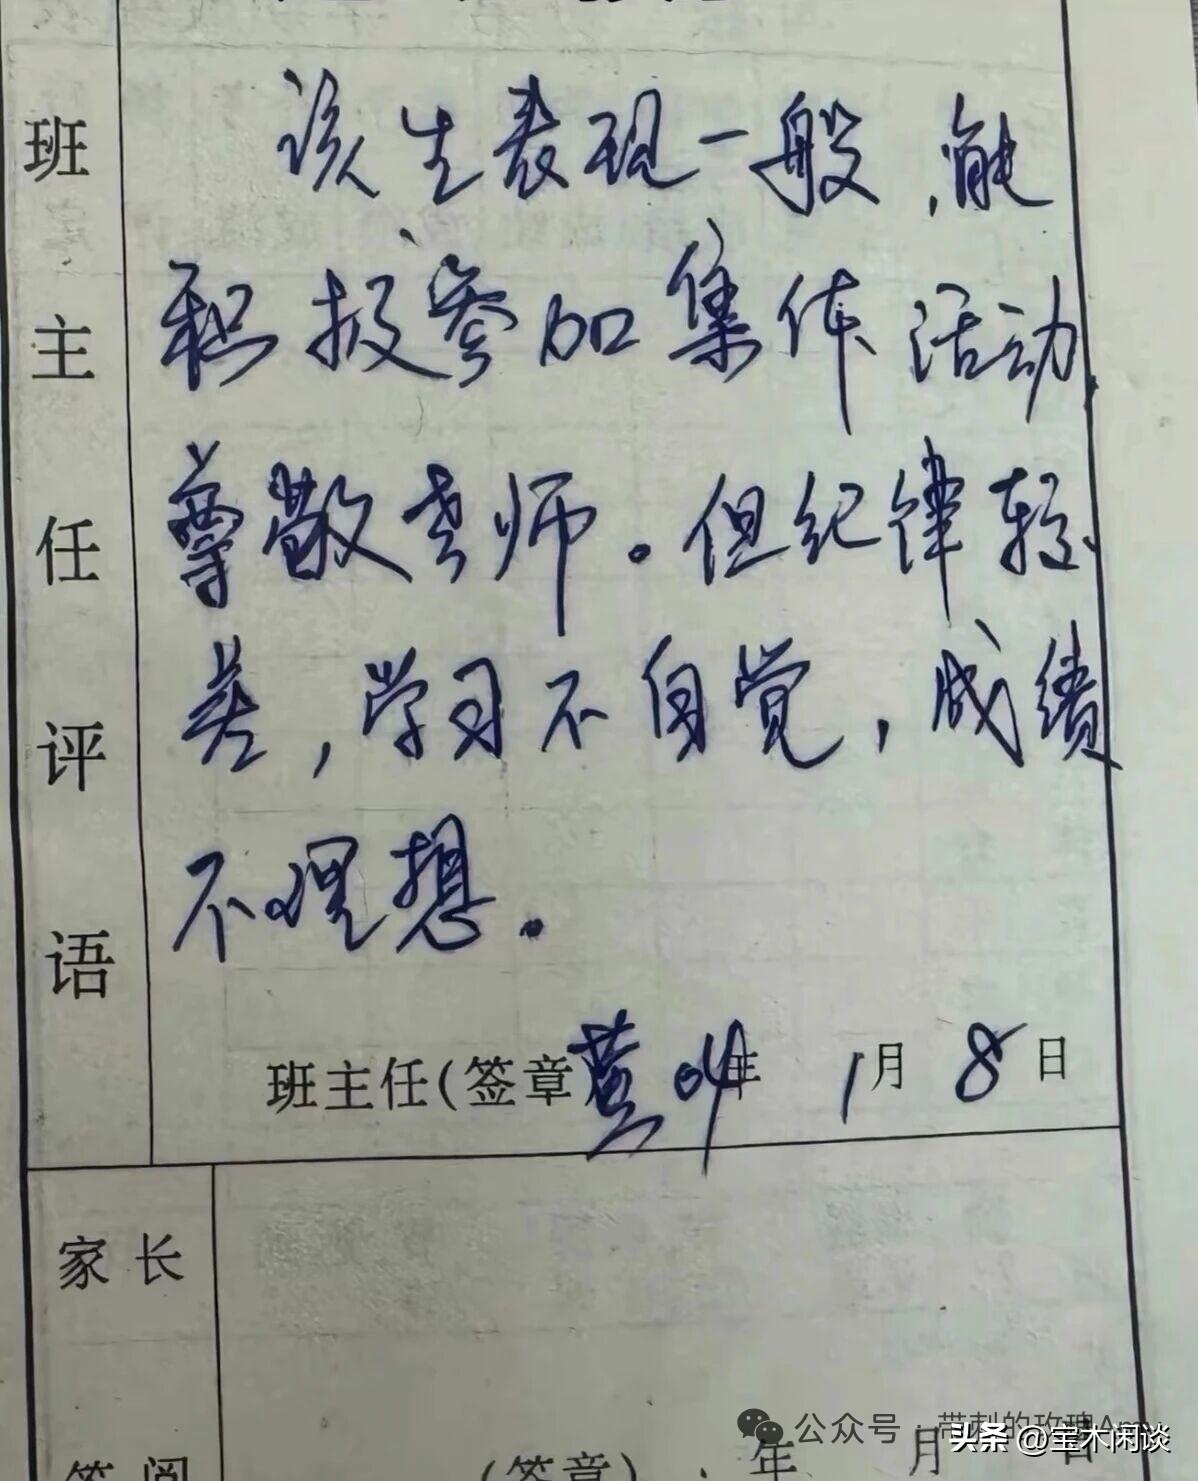 班主任评语
该生表现一般,能
积极参加集体活动
尊敬老师。但纪律较
差,学习不自觉,成绩
不理想。
班主任(签章 黄 04年 1月 8日
家长
签阅
(签章) 年 月 日
公众号·带刺的玫瑰Amy
头条@宝木闲谈